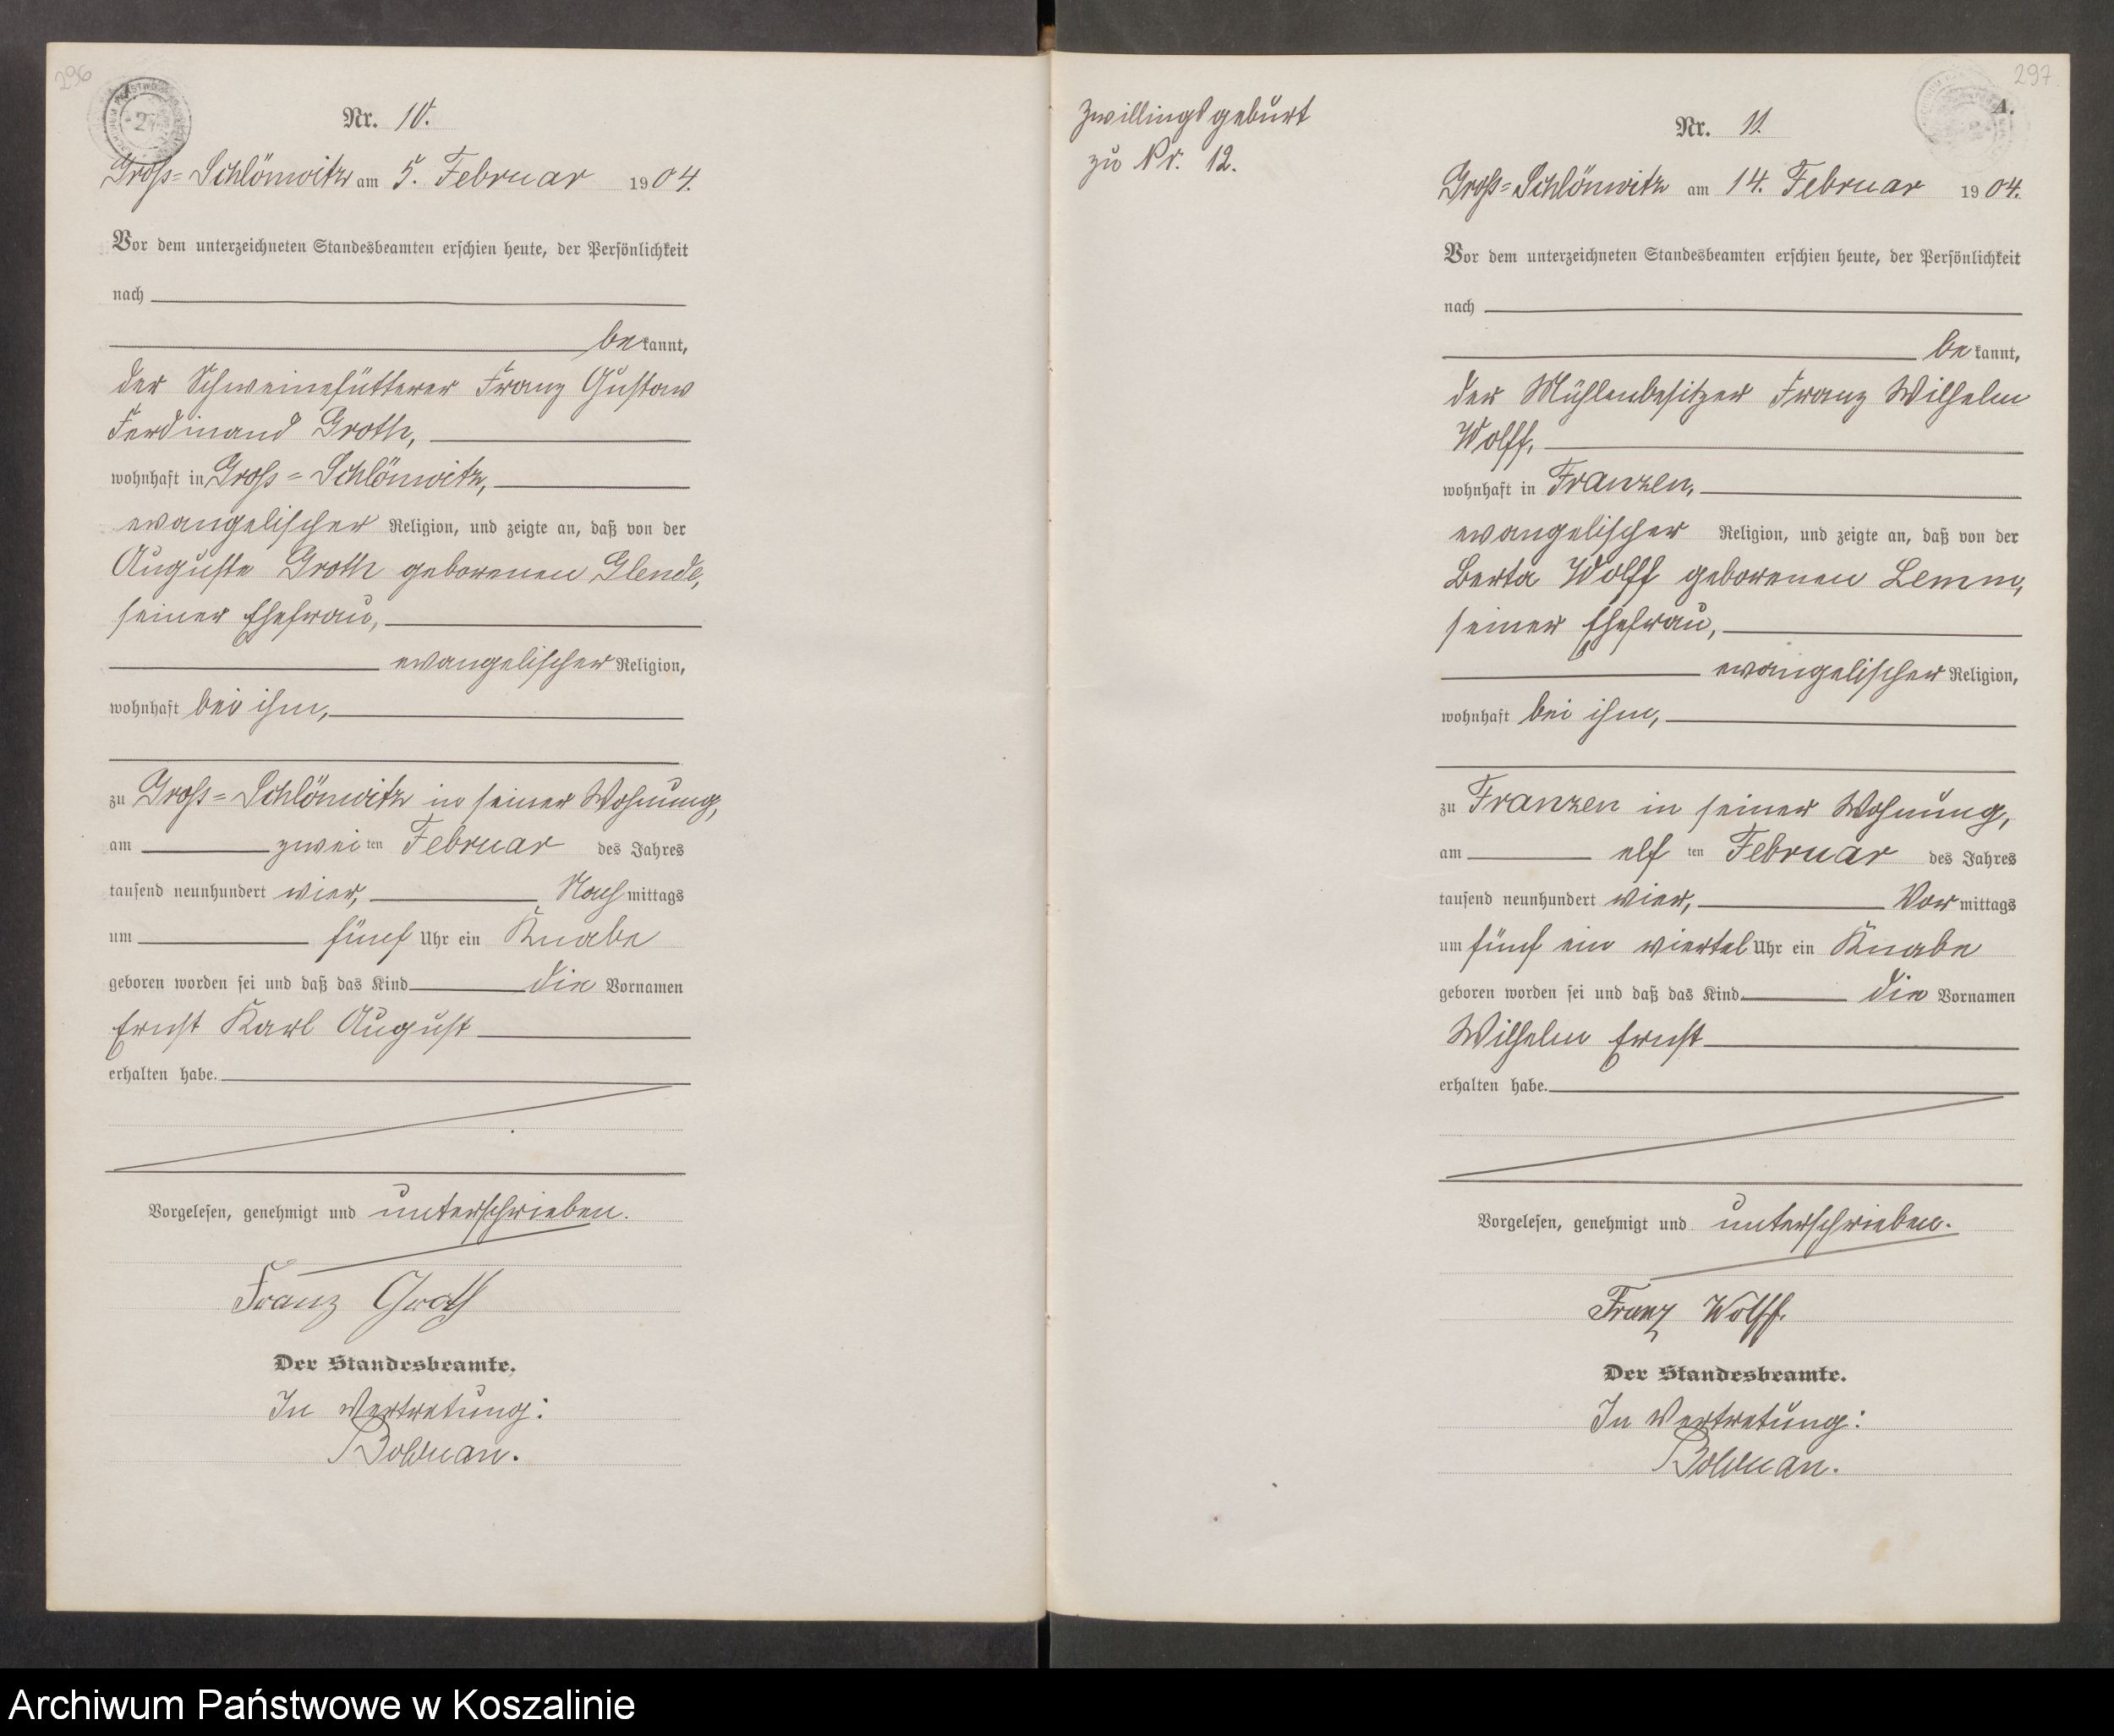 296
Nr. 10.
Groß=Schlönwitz am 5. Februar 1904.
Vor dem unterzeichneten Standesbeamten erschien heute, der Persönlichkeit
nach
bekannt,
der Schweinefütterer Franz Gustav
Ferdinand Groth,
wohnhaft in Groß=Schlönwitz,
evangelischer Religion, und zeigte an, daß von der
Auguste Groth geborenen Glende,
seiner Ehefrau,
evangelischer Religion,
wohnhaft bei ihm,
zu Groß=Schlönwitz in seiner Wohnung,
am zweiten Februar des Jahres
tausend neunhundert vier, Nachmittags
um fünf Uhr ein Knabe
geboren worden sei und daß das Kind die Vornamen
Ernst Karl August
erhalten habe.
Vorgelesen, genehmigt und unterschrieben.
Franz Groth
Der Standesbeamte.
In Vertretung:
Bolduan.
297
A.
Zwillingsgeburt
zu Nr. 12.
Nr. 11.
Groß=Schlönwitz am 14. Februar 1904.
Vor dem unterzeichneten Standesbeamten erschien heute, der Persönlichkeit
nach
bekannt,
der Mühlenbesitzer Franz Wilhelm
Wolff,
wohnhaft in Franzen,
evangelischer Religion, und zeigte an, daß von der
Berta Wolff geborenen Lemm,
seiner Ehefrau,
evangelischer Religion,
wohnhaft bei ihm,
zu Franzen in seiner Wohnung,
am elften Februar des Jahres
tausend neunhundert vier, Vormittags
um fünf ein viertel Uhr ein Knabe
geboren worden sei und daß das Kind die Vornamen
Wilhelm Ernst
erhalten habe.
Vorgelesen, genehmigt und unterschrieben.
Franz Wolff.
Der Standesbeamte.
In Vertretung:
Bolduan.
Archiwum Państwowe w Koszalinie